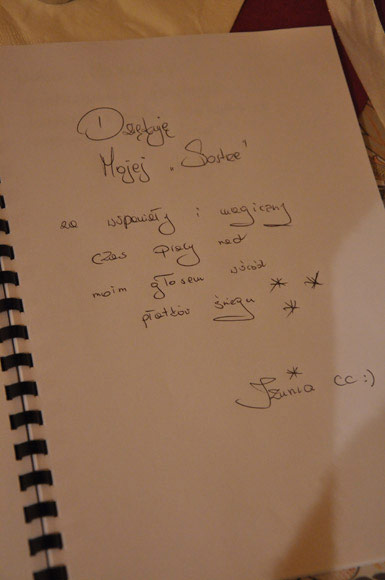 Dziękuję
Mojej „Siostce"
za wspaniały i magiczny
czas pracy nad
moim głosem wśród
płatków śniegu
Izunia CC :)